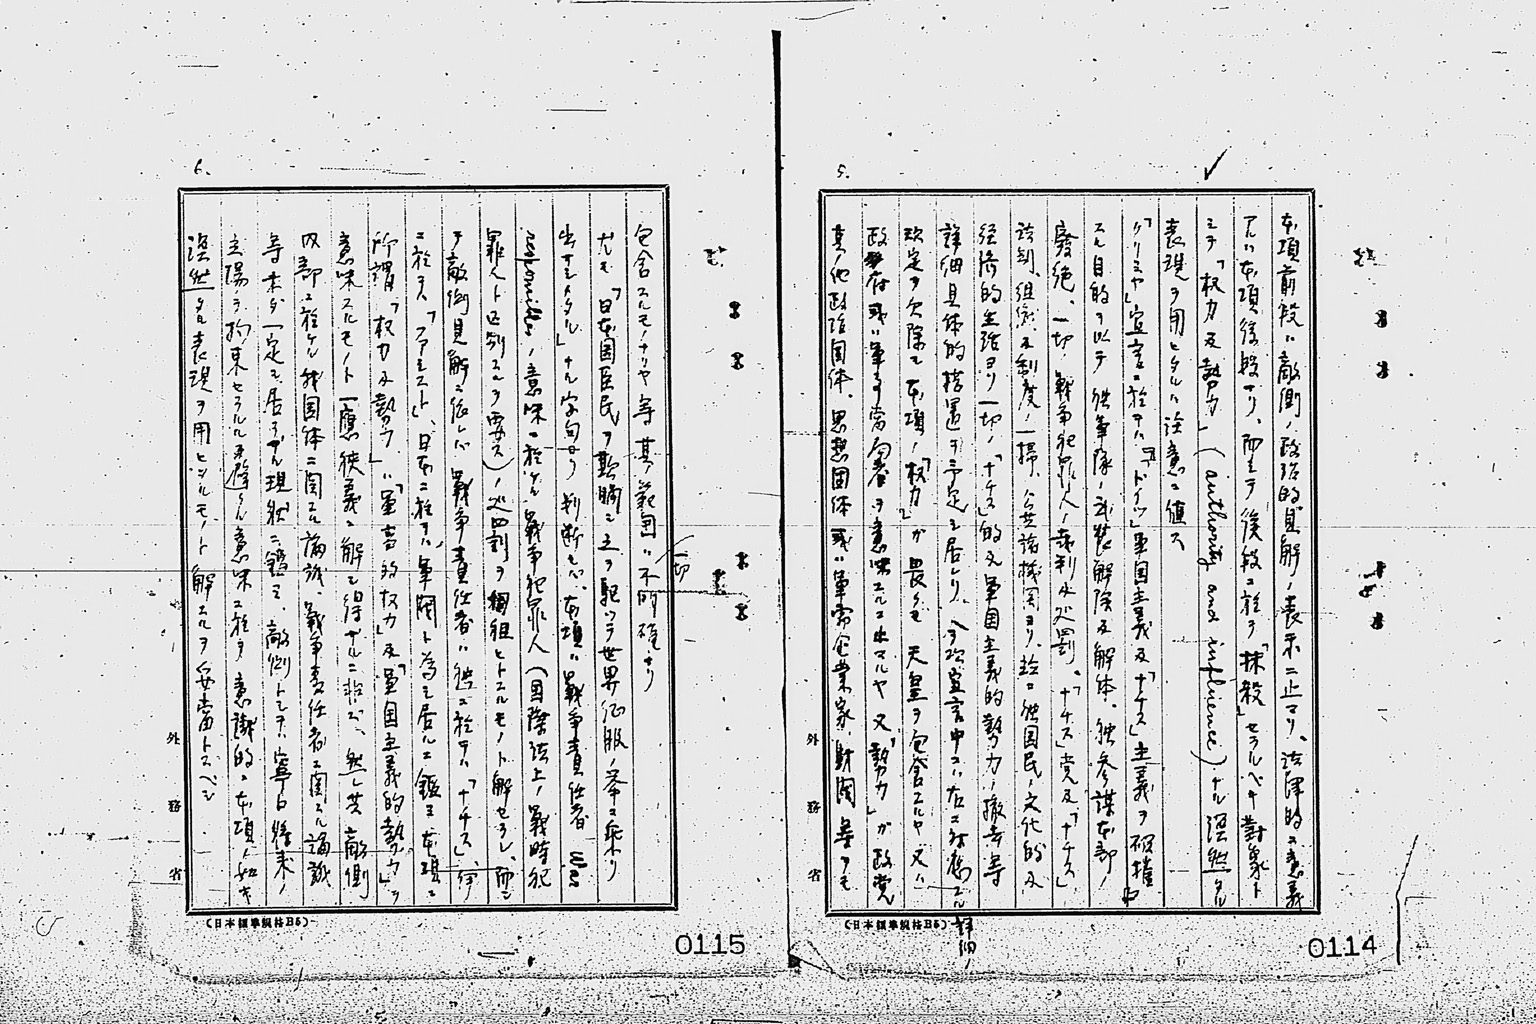 5.
本項前段ハ敵側ノ政治的見解ノ表示ニ止マリ、法律的ニ意義
アルハ本項後段ナリ、而シテ後段ニ於テ「抹殺」セラルベキ對象ト
シテ「权力及勢力」(authority and influence)ナル漠然タル
表現ヲ用ヒタルハ注意ニ値ス
「クリミヤ」宣言ニ於テハ「『ドイツ』軍国主義及『ナチス』主義ヲ破摧
スル目的ヲ以テ 独軍隊ノ武装解除及解体、独参謀本部ノ
廢絶、一切ノ戦争犯罪人ノ裁判及処罰、「ナチス」党及「ナチス」
法制、組織及制度ノ一掃、公共諸機関ヨリ、竝ニ独国民ノ文化的及
経済的生活ヨリ一切ノ「ナチス」的及軍国主義的勢力ノ撤去等
詳細具体的措置ヲ予定シ居レリ、今次宣言中ニハ右ニ対應スル詳細ノ
規定ヲ欠除シ本項ノ「权力」ガ 畏クモ 天皇ヲ包含スルヤ又ハ
政府或ハ軍司令部ヲ意味スルニ止マルヤ 又「勢力」ガ 政党
其ノ他政治団体、思想団体 或ハ軍需企業家、財閥 等ヲモ
外務省
(日本標準規格B5)
0114
6.
包含スルモノナリヤ等 其ノ範囲ハ一切不明確ナリ
尤モ「日本国臣民ヲ欺瞞シ之ヲ駆ツテ世界征服ノ挙ニ出デシメタル」ナル字句ヨリ判断セバ、本項ハ戦争責任者
responsibles ノ意味ニ於ケル戦争犯罪人(国際法上ノ戦時犯
罪人ト区別スルヲ要ス)ノ処罰ヲ
テ敵側見解ニ依レバ 戦争責任者ハ独ニ於テハ「ナチス」、伊
ニ於テハ「ファシスト」、日本ニ於テハ 軍閥ト為シ居ルニ鑑ミ本項ニ
所謂「权力及勢力」ハ「軍事的权力」及「軍国主義的勢力」ヲ
意味スルモノト一應狭義ニ解シ得ザルニ非ズ、然レ共 敵側
内部ニ於ケル我国体ニ関スル論議、戦争責任者ニ関スル論議
等未ダ一定シ居ラザル現状ニ鑑ミ、敵側トシテハ寧ロ将来ノ
立場ヲ拘束セラルルヲ避クル意味ニ於テ 意識的ニ本項ノ如キ
漠然タル表現ヲ用ヒタルモノト 解スルヲ妥当トスベシ
外務省
(日本標準規格B5)
0115